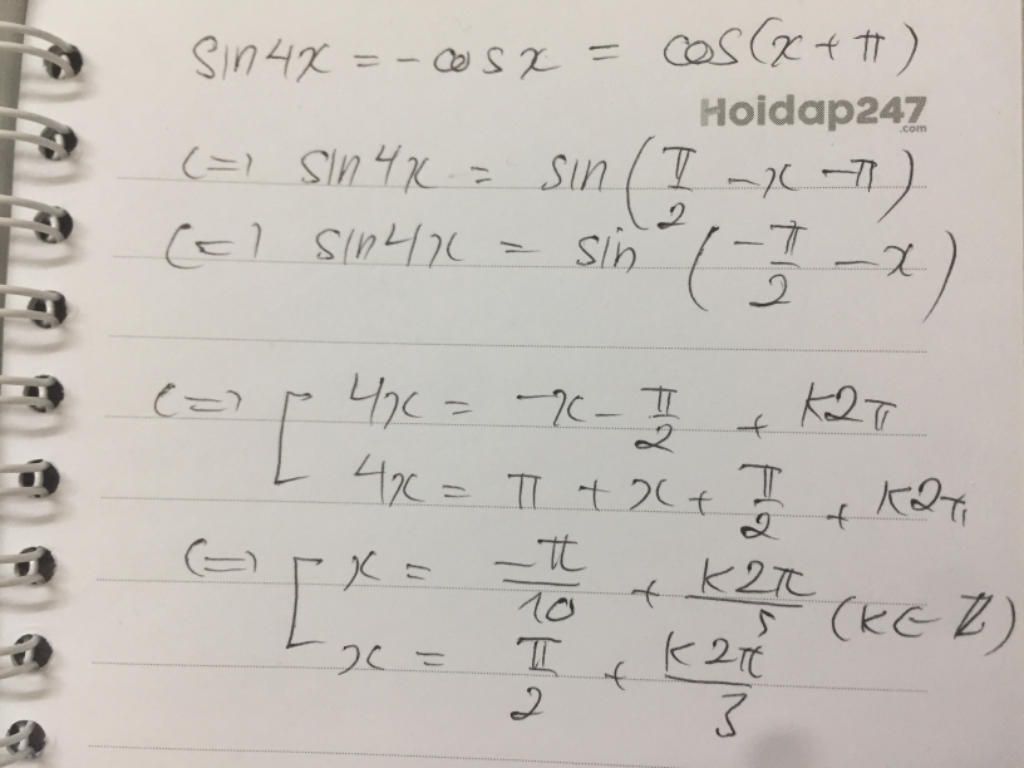 sin4x = -cosx = cos(x+π)
Hoidap247
.com
(=) sin4x = sin(π/2 - x - π)
(=) sin4x = sin(-π/2 - x)
(=) [ 4x = -x - π/2 + k2π
4x = π + x + π/2 + k2π
(=) [ x = -π/10 + k2π/5 (k∈Z)
x = π/2 + k2π/3